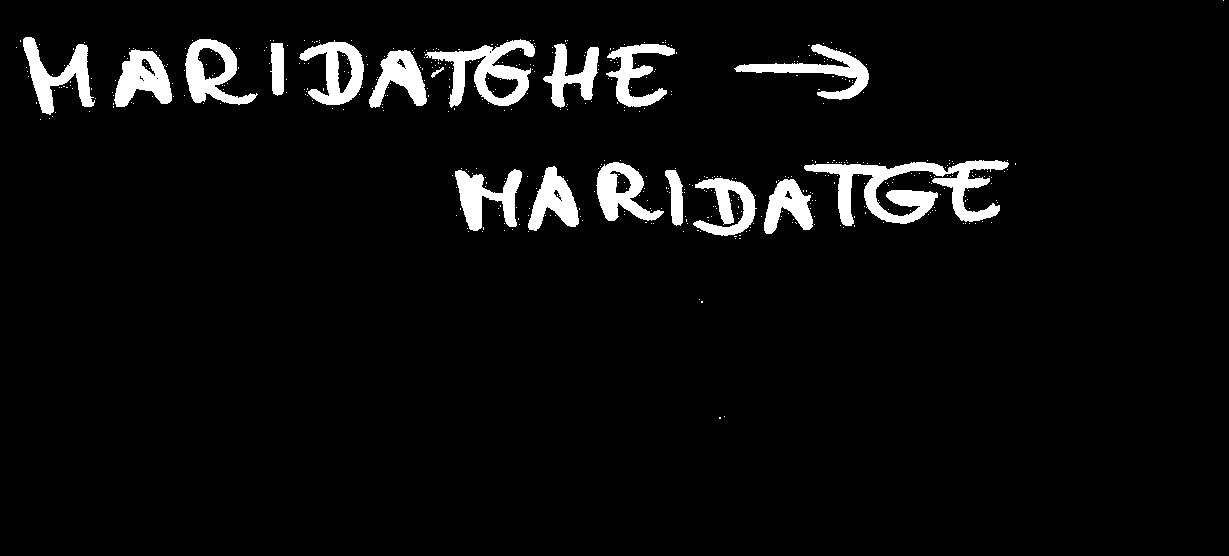 MARIDATGHE →
MARIDATGE